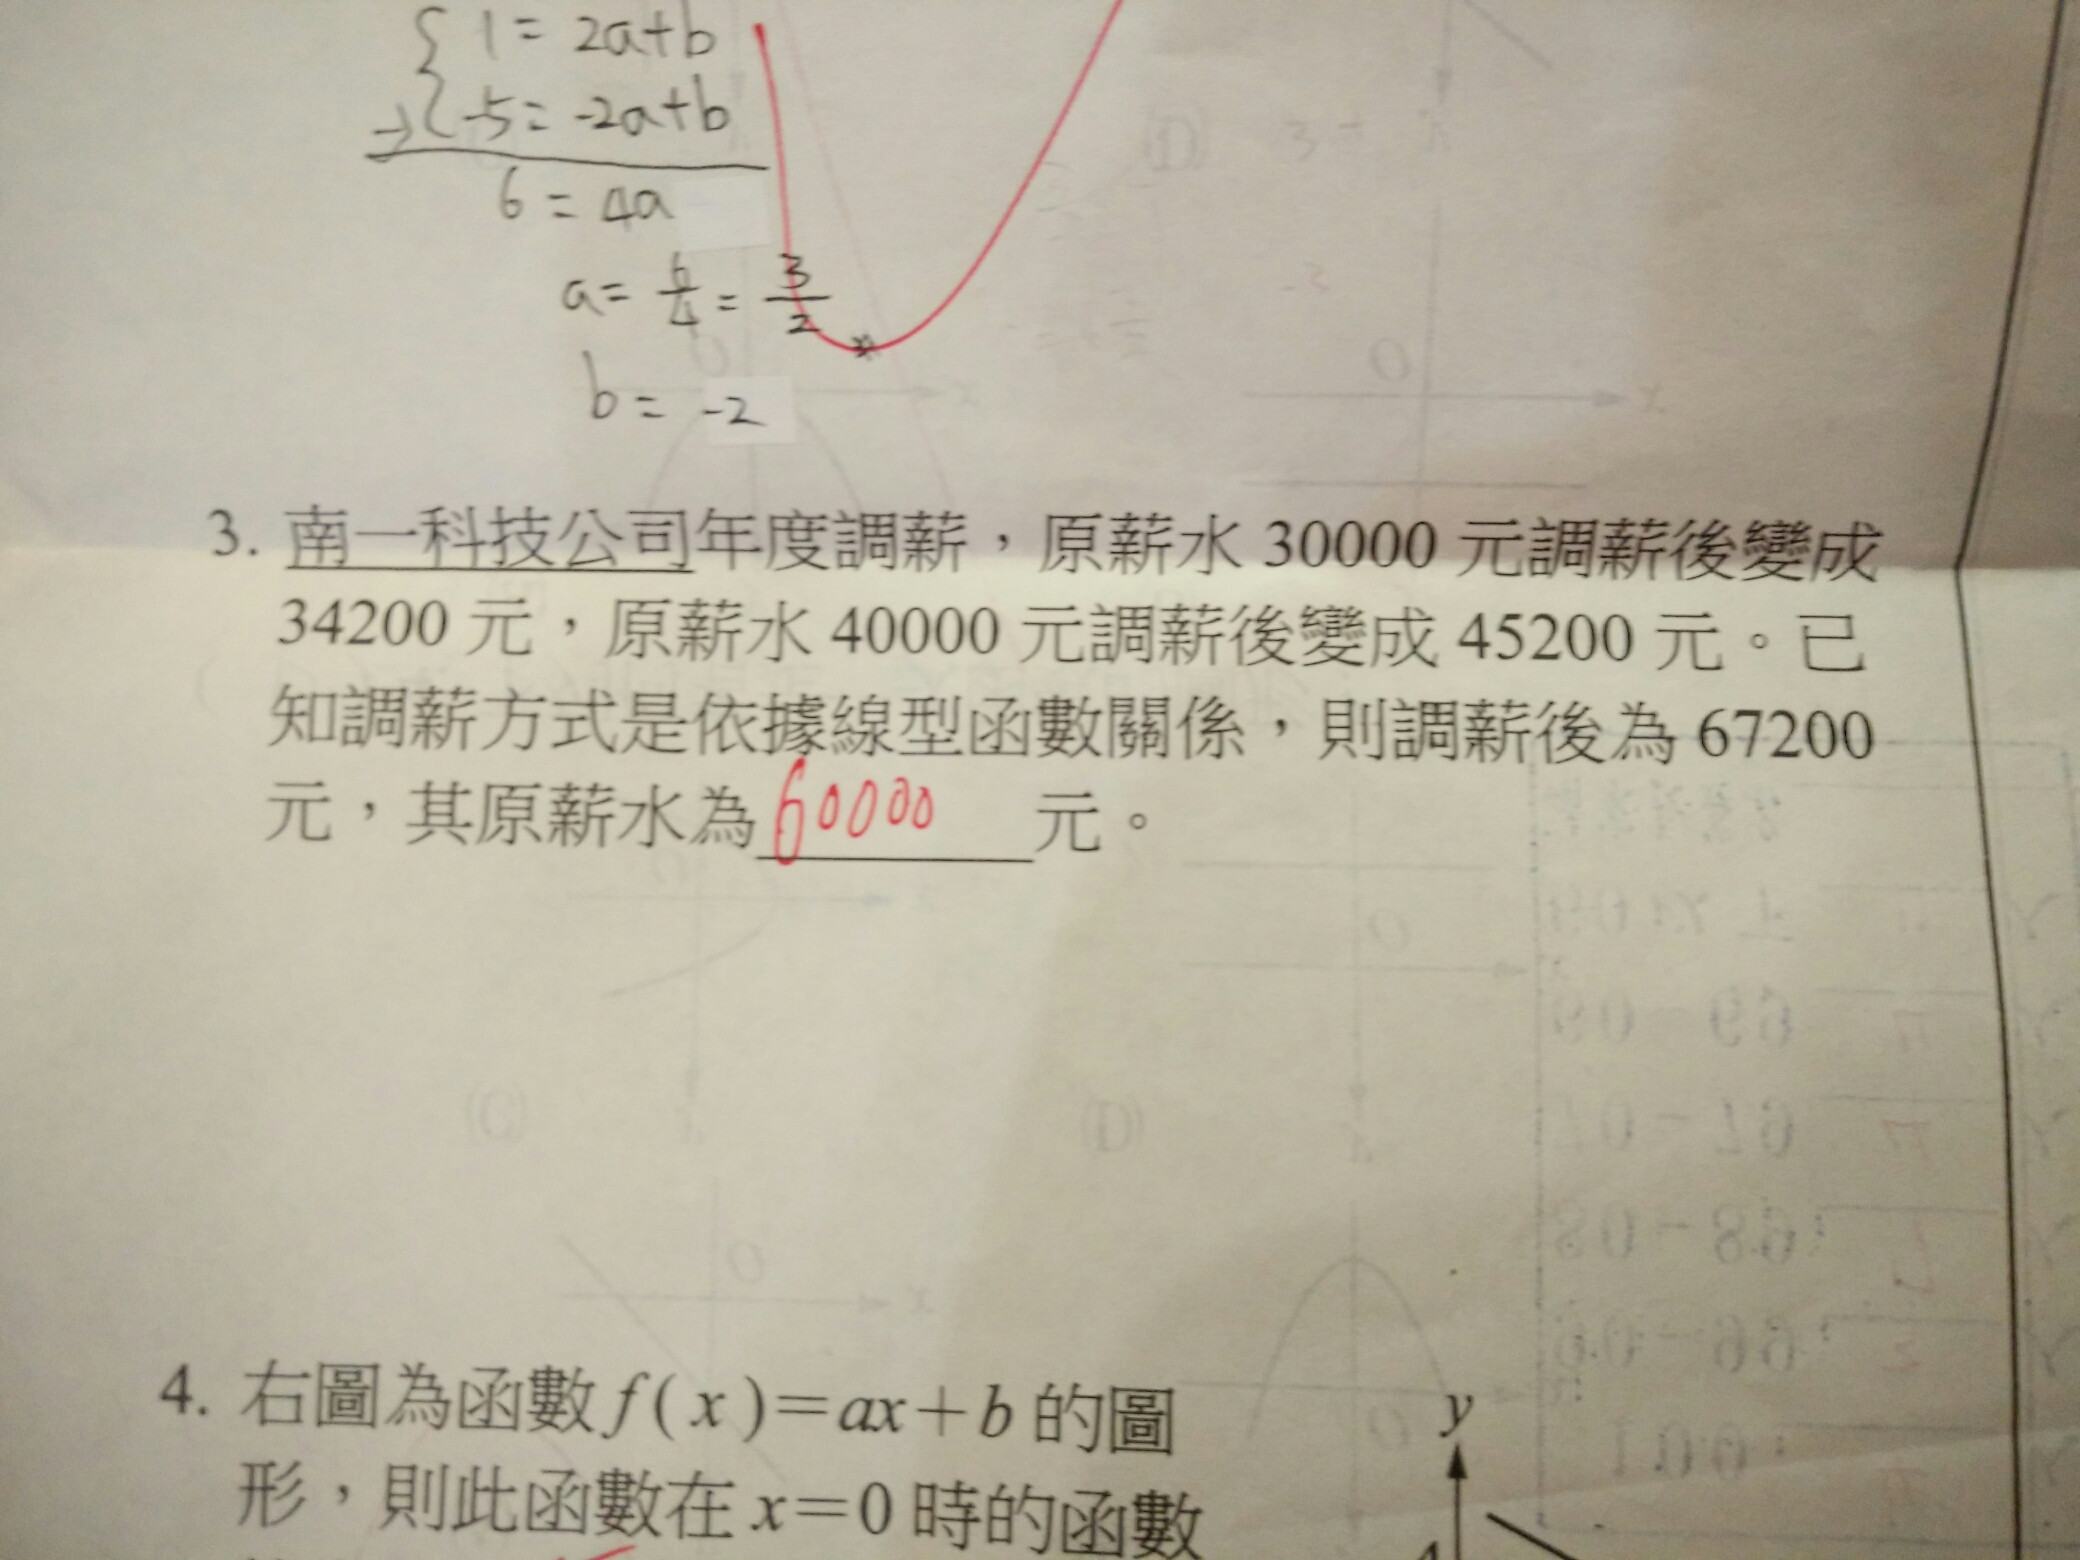 1 = 2a+b
→ -5 = -2a+b
6 = 4a
a = 6/4 = 3/2
b = -2
3. 南一科技公司年度調薪，原薪水 30000 元調薪後變成
34200 元，原薪水 40000 元調薪後變成 45200 元。已
知調薪方式是依據線型函數關係，則調薪後為 67200
元，其原薪水為 60000 元。
4. 右圖為函數 f(x)=ax+b 的圖
形，則此函數在 x=0 時的函數
y